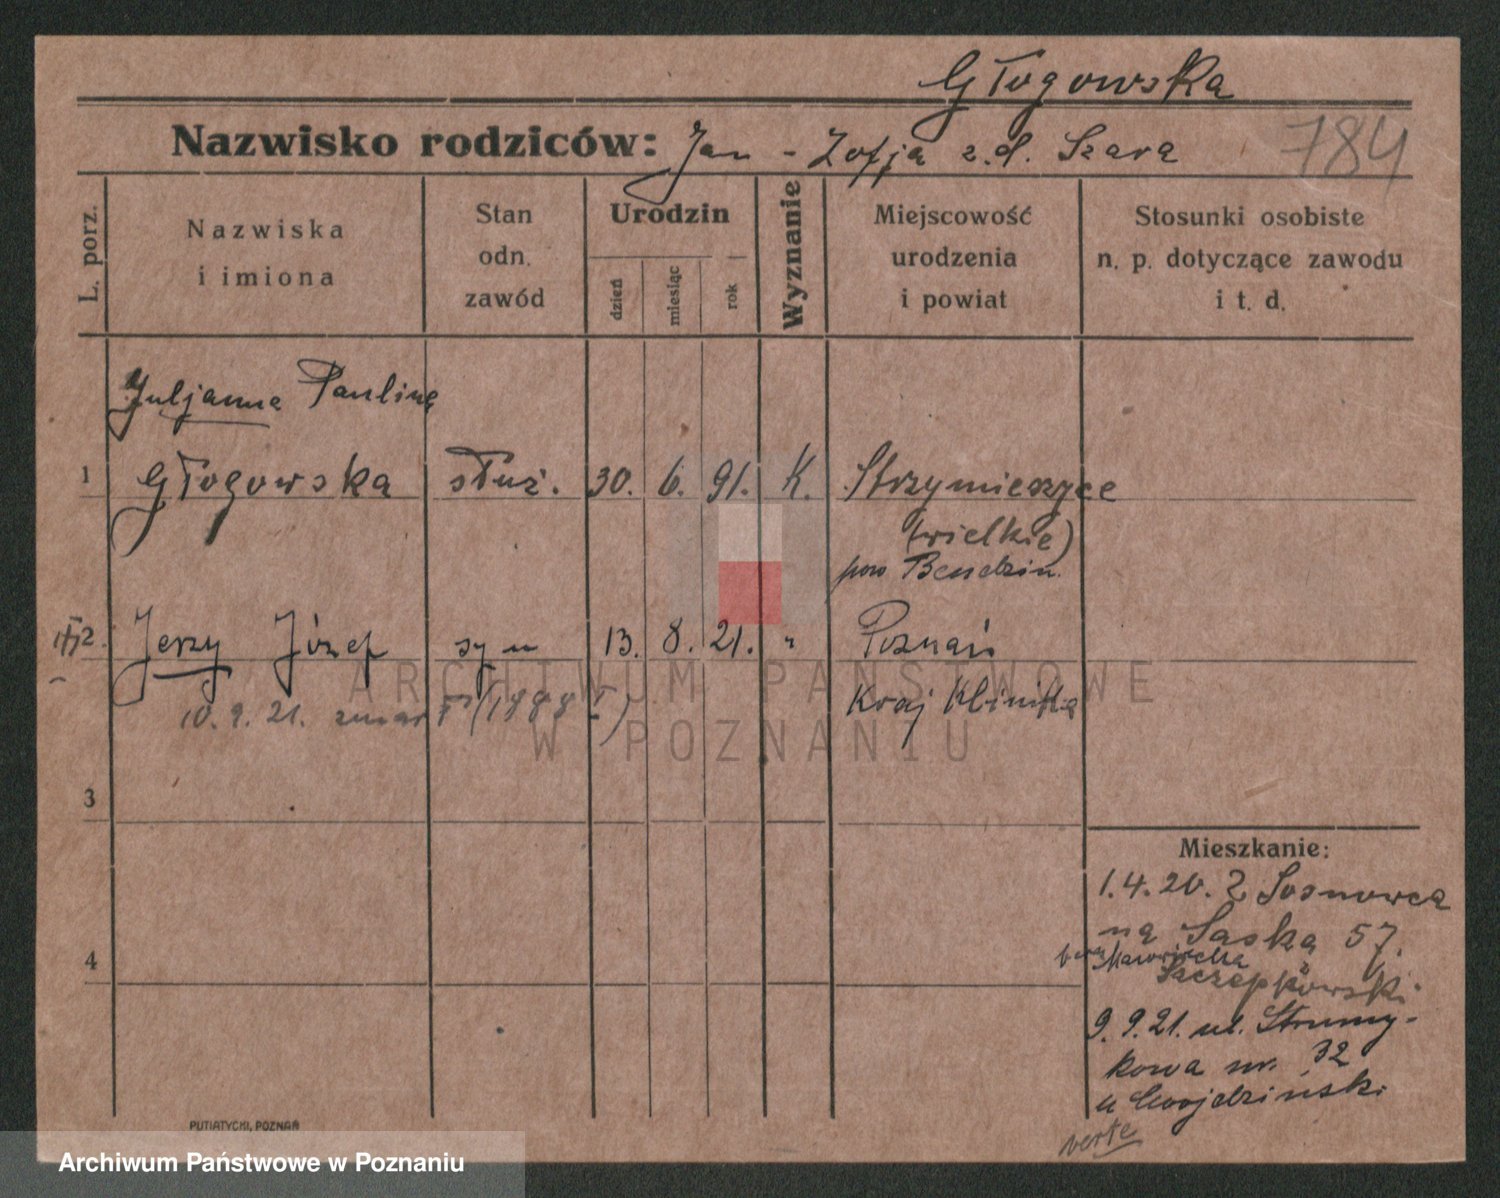 Głogowska
Nazwisko rodziców: Jan - Zofja z.d. Szara 784
L. porz.
Nazwiska
i imiona
Stan
odn.
zawód
Urodzin
dzień
miesiąc
rok
Wyznanie
Miejscowość
urodzenia
i powiat
Stosunki osobiste
n. p. dotyczące zawodu
i t. d.
Juljanna Paulina
1 Głogowska służ. 30. 6. 91. K. Strzymieszyce
(wielkie)
pow Bendzin.
2. Jerzy Józef syn 13. 8. 21. " Poznań
10.9.21. zmarł (1888 Kraj Klinika
3
4
Mieszkanie:
1.4.20. Z Sosnowca
na Saska 57.
Szczepkowski
9.9.21. ul. Strumy-
kowa nr. 32
u Gwojdziński
verte
PUTIATYCKI, POZNAŃ
ARCHIWUM PAŃSTWOWE
W POZNANIU
Archiwum Państwowe w Poznaniu